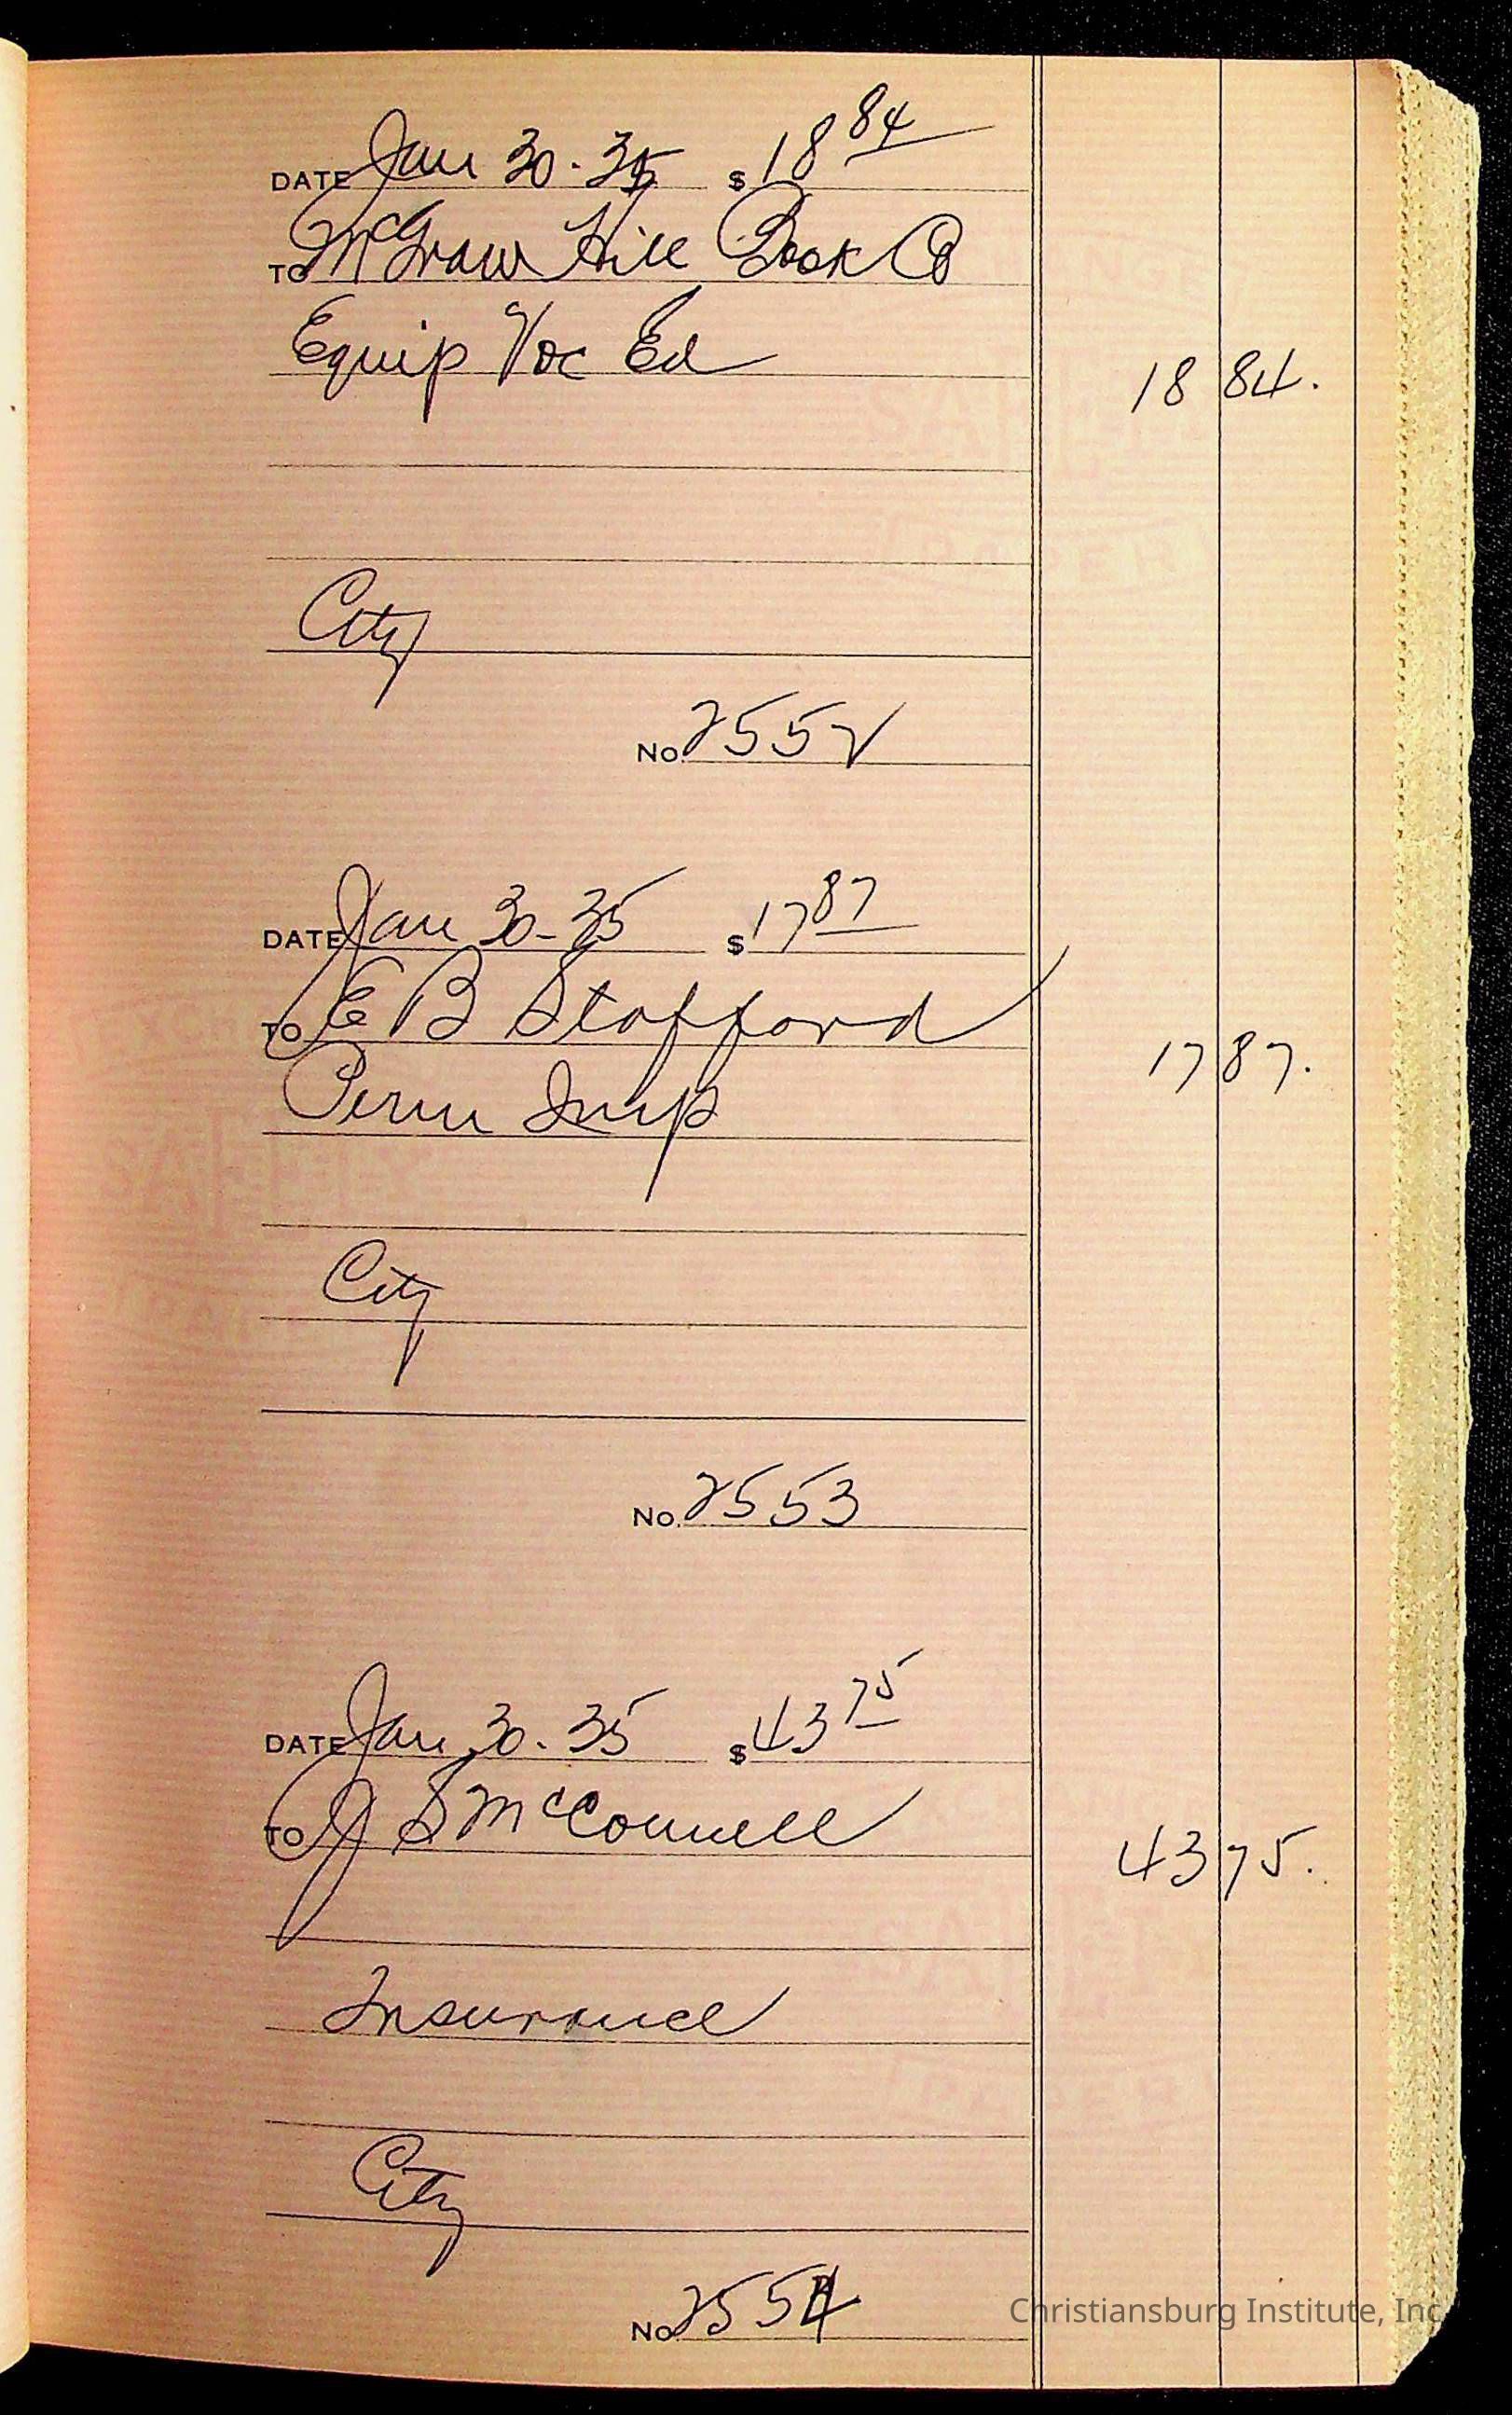 DATE Jan 30 - 35 $ 18 84
TO McGraw Hill Book Co
Equip Voc Ed
18 84.
City
No. 2552
DATE Jan 30 - 35 $ 17 87
TO E B Stafford
17 87.
Perm Imp
City
No. 2553
DATE Jan 30 - 35 $ 43 75
TO J S McConnell
43 75.
Insurance
City
No. 2554
Christiansburg Institute, Inc.